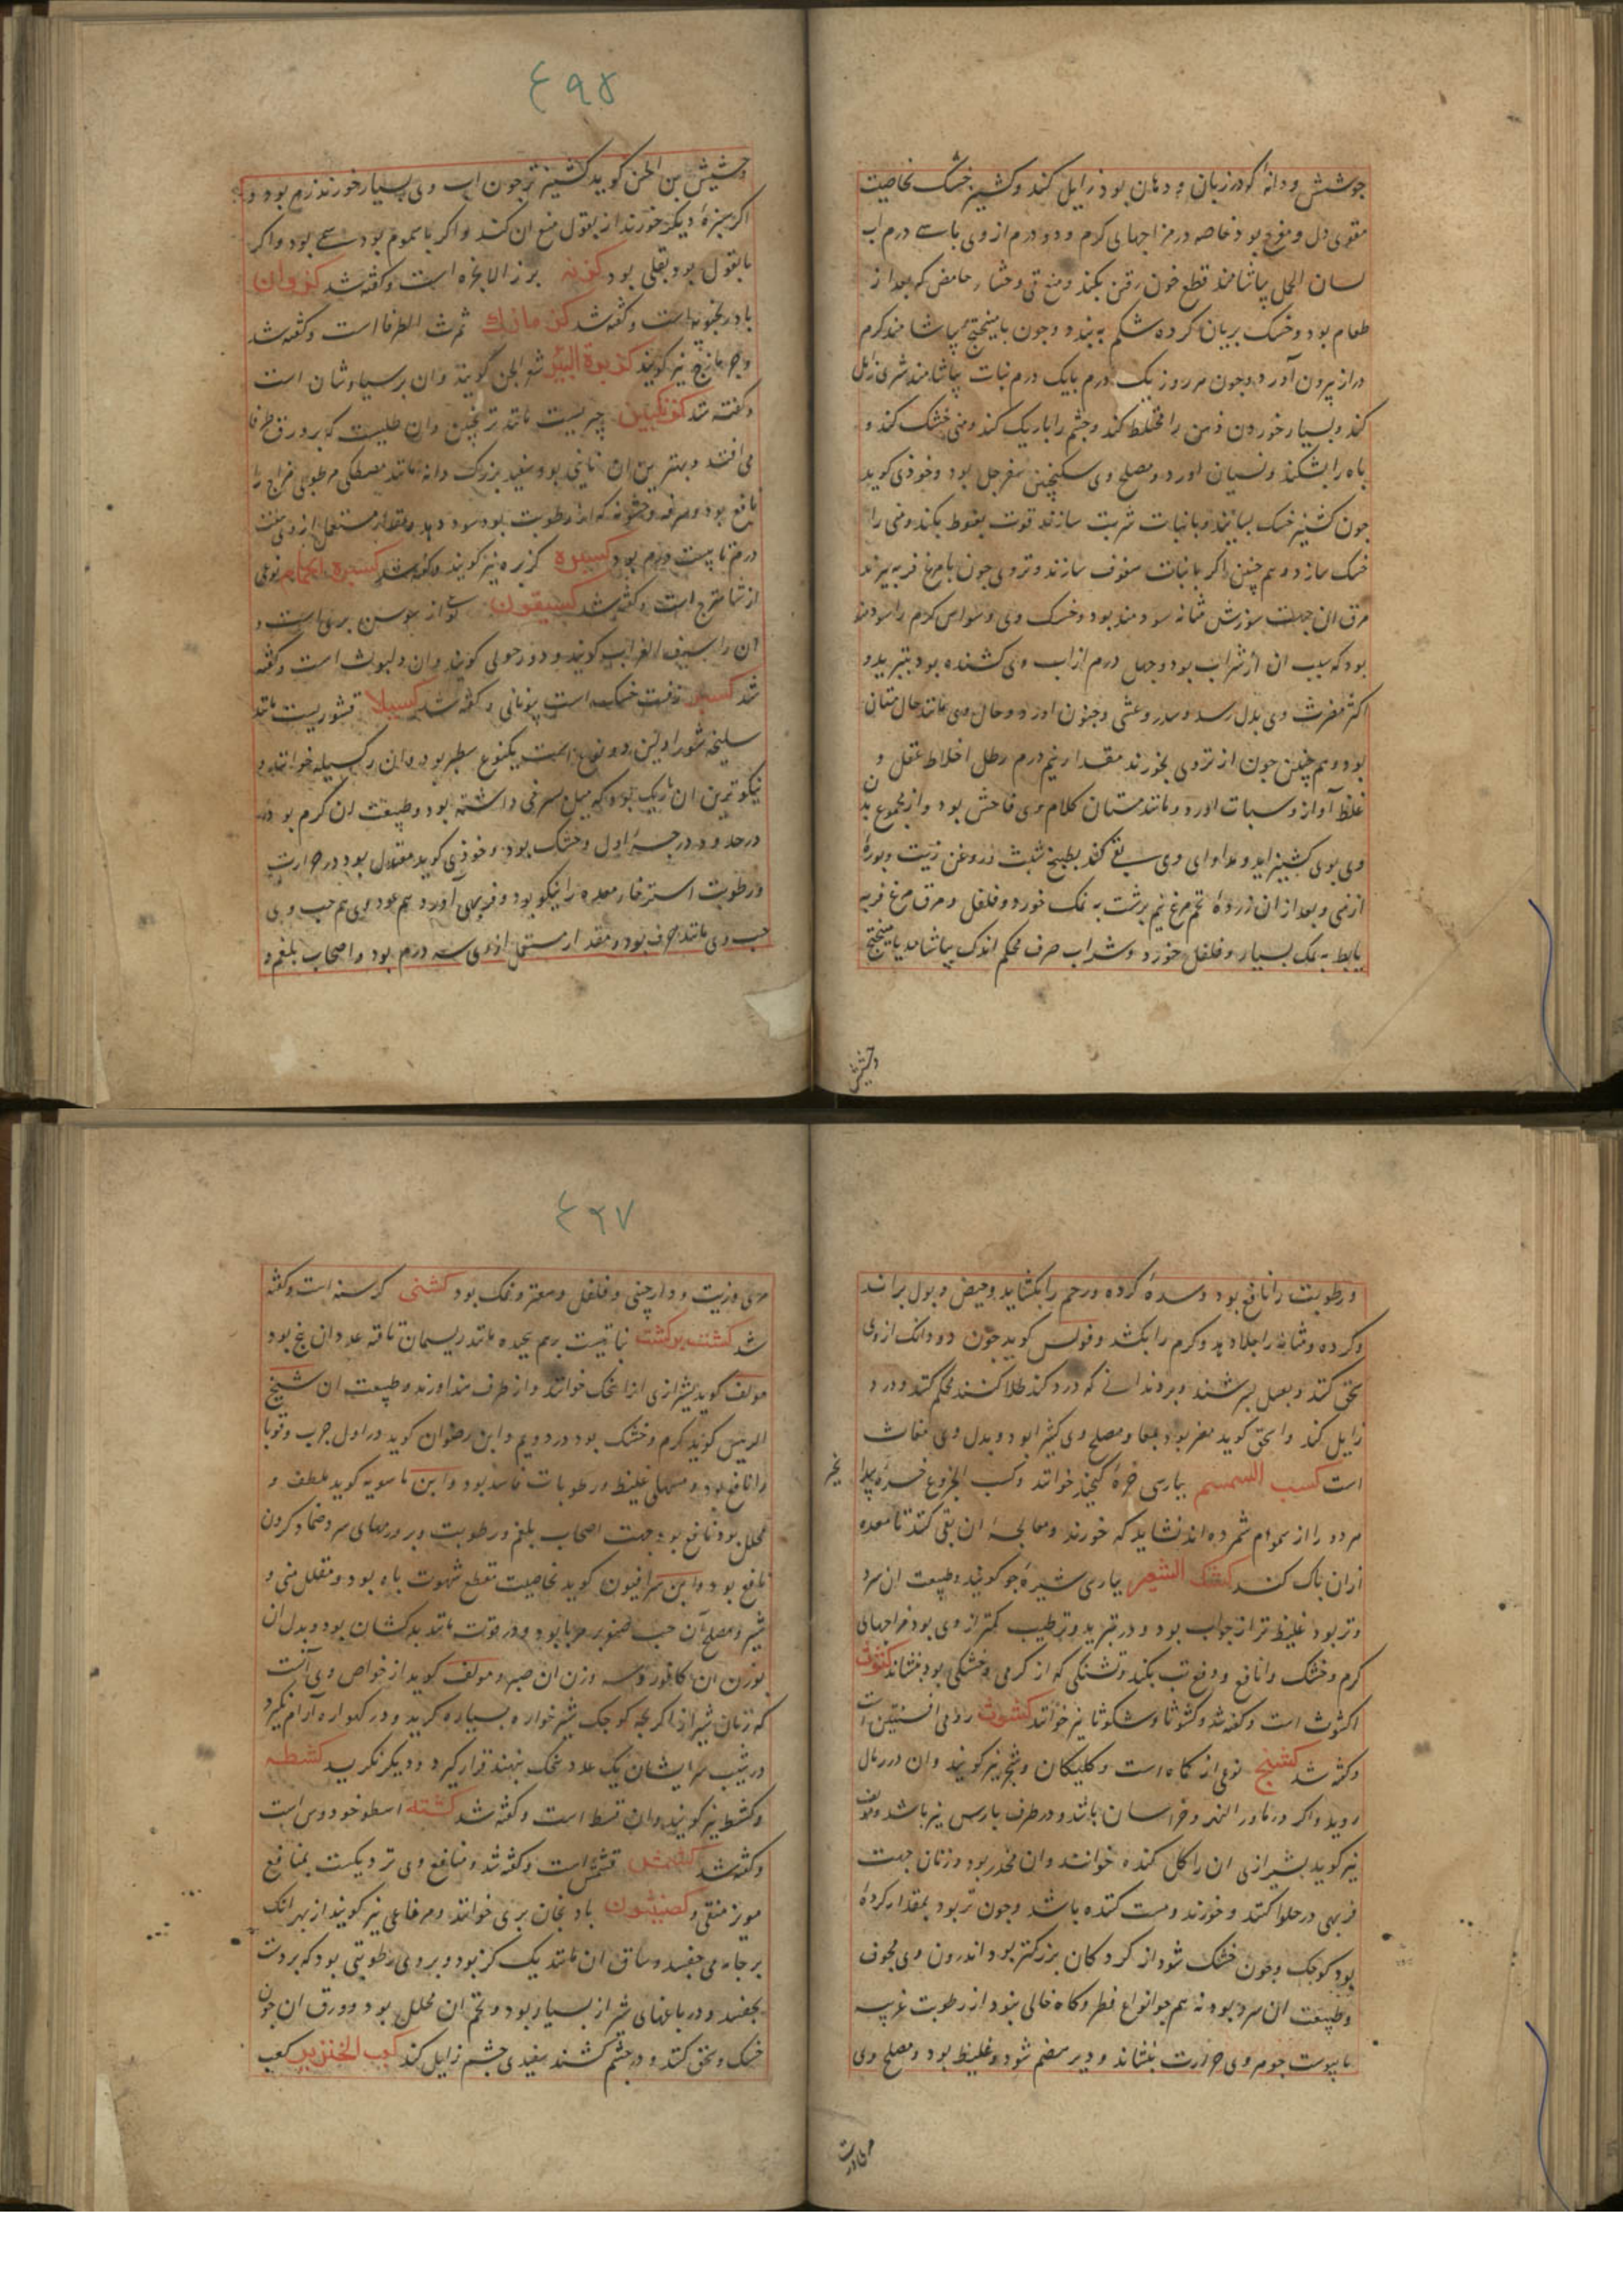 جوشش و دانهٔ که در زبان و دهان بود زایل کند و کشنیز خشک بخاصیت
مقوی دل و مفرح بود خاصه در مزاجهای کرم و دو درم از وی با سی درم اب
لسان الحمل بیاشامند قطع خون رفتن بکند و منع قی و جشاء حامض که بعد از
طعام بود و خشک بریان کرده شکم ببندد و چون با میبختج بیاشامند کرم
دراز بیرون آورد و چون هر روز یک درم با یک درم نبات بیاشامند شری زایل
کند و بسیار خوردن ذهن را مختلط کند و چشم را تاریک کند و منی خشک کند و
باه را بشکند و نسیان اورد و مصلح وی سکنجبین سفرجل بود و خوذی کوید
چون کشنیز خشک بسایند و با نبات شربت سازند قوت نعوظ بکند و منی را
خشک سازد و هم چنین اکر با نبات سفوف سازند و تر وی چون با مرغ فربه پزند
مرق ان جهت سوزش مثانه سودمند بود و خشک وی وسواس کرم را سود دهد
بود که سبب ان از شراب بود و چهل درم از اب وی کشنده بود بتبرید و
اکثر مضرت وی بدل رسد و سدر و غشی و جنون اورد و حال وی مانند حال مستان
بود و هم چنین چون از تر وی بخورند مقدار نیم رطل اختلاط عقل و
غلظ آواز و سبات اورد و مانند مستان کلام وی فاحش بود و از مجموع بدن
وی بوی کشنیز اید و مداوای وی بقی کنند بطبیخ شبت و روغن زیت و بورهٔ
ارمنی و بعد از ان زردهٔ تخم مرغ نیم برشت به نمک خورد و فلفل و مرق مرغ فربه
یا بط به نمک بسیار و فلفل خورد و شراب صرف محکم اندک بیاشامد یا میبختج
وحشیش
٤٩٥
وحشیش بن الحسن کوید کشنیز تر چون اب وی بسیار خورند زهر بود و
اکر سبزهٔ دیکر خورند از بقول منع ان کند و اکر با سموم بود سمی بود و اکر
با بقول بود بقلی بود کزنه بزر الانجره است و کفته شد کزوان
بادرنجبویه است و کفته شد کزمازک ثمرة الطرفا است و کفته شد
و جزمازج نیز کویند کزبرة البئر شعر الجن کویند و ان برسیاوشان است
و کفته شد کزنکبین چیزیست مانند ترنجبین و ان طلیست که بر ورق طرفا
می افتد و بهترین ان
نافع بود و سرفه و خشونه که از رطوبت بود سود دهد و مقدار مستعمل از وی هفت
درم تا بیست درم بود کسبره کزبره نیز کویند و کفته شد کسبرة الحمام نوعی
از شاهترج است و کفته شد کسیفون نوعی از سوسن بری است و
ان را سیف الغراب کویند و دورحولی کویند و ان دلبوث است و کفته
شد
سلیخه
نیکوترین ان باریک بود که میل بسرخی داشته بود و طبیعت ان کرم بود در
در حدود درجهٔ اول و خشک بود و خوذی کوید معتدل بود در حرارت
و رطوبت استرخاء معده را نیکو بود و فربهی آورد هم عود وی هم حب وی
حب وی مانند حرف بود و مقدار مستعمل از وی سه درم بود و اصحاب بلغم و
و رطوبت را نافع بود و سدهٔ کرده و رحم را بکشاید و حیض و بول براند
و کرده و مثانه را جلا دهد و کرم را بکشد و فولس کوید چون دو دانک از وی
سحق کنند و بعسل بسرشند و بر دندانی که درد کند طلا کنند محکم کند و درد
زایل کند و اسحق کوید مضر بود بمعا و مصلح وی کثیرا بود و بدل وی مغاث
است کسب السمسم بپارسی خرهٔ کنجد خوانند و کسب الخروع خرهٔ بید انجیر
هر دو را از سموم شمرده اند نشاید که خورند و معالجهٔ ان بقی کنند تا معده
ازان پاک کنند کشک الشعیر بپارسی شیرهٔ جو کویند و طبیعت ان سرد
و تر بود غلیظ تر از جواب بود و در تبرید و ترطیب کمتر از وی بود مزاجهای
کرم و خشک را نافع و دفع تب بکند و تشنکی که از کرمی و خشکی بود بنشاند کشوث
اکشوث است و کفته شد و کشوثا و شکوثا نیز خوانند کشوث رومی افسنتین است
و کفته شد کشنج نوعی از کماه است و کلیکان و شج نیز کویند و ان در رمال
روید و اکثر در ماوراء النهر و خراسان باشد و در طرف پارس نیز باشد و مولف
نیز کوید بشیرازی ان را کل کنده خوانند و ان مخدر بود و زنان جهت
فربهی در حلوا کنند و خورند و مست کننده باشد و چون تر بود بمقدار کردهٔ
بود کوچک و چون خشک شود از کردکان بزرکتر بود اندرون وی مجوف
و طبیعت ان سرد بود نه هم جو انواع فطر و کماه خالی نبود از رطوبت غریبه
با پوست جوهر وی حرارت بنشاند و دیر هضم شود و غلیظ بود و مصلح وی
٤٩٧
مری و زیت و دارچینی و فلفل و صعتر و نمک بود کشنی کرسنه است و کفته
شد کشت بر کشت نباتیست بر هم پیچیده مانند ریسمان تافته عدد ان پنج بود
مولف کوید بشیرازی انرا پیچک خوانند و از طرف هند اورند و طبیعت ان شیخ
الرئیس کوید کرم و خشک بود در دویم و ابن رضوان کوید در اول جرب و قوبا
را نافع بود و مسهل غلیظ و رطوبات فاسد بود و ابن ماسویه کوید ملطف و
محلل بود و نافع بود جهت اصحاب بلغم و رطوبت و بر ورمهای سرد ضماد کردن
نافع بود و ابن سرافیون کوید بخاصیت مقطع شهوت باه بود و مقلل منی و
شیر و مصلح آن حب صنوبر مربا بود و در قوت مانند بدکشان بود و بدل ان
بوزن ان کافور و سه وزن ان صبر و مولف کوید از خواص وی آنست
که زنان شیراز اکر بچه کوچک شیر خواره بسیار کرید و در کهواره آرام نکیرد
در شیب سر ایشان یک عدد پیچک بنهند قرار کیرد و دیکر نکرید کشطه
و کشط نیز کویند و ان قسط است و کفته شد کشته اسطوخودوس است
و کفته شد کشمش قشمش است و کفته شد و منافع وی نزدیکست بمنافع
مویز منقی و بادنجان بری خوانند و مرماعی نیز کویند از بهر انک
بر جامه می چفسد و ساق ان مانند یک کز بود و بر وی رطوبتی بود که بر دست
بچفسد و در باغهای شیراز بسیار بود و تخم ان محلل بود و ورق ان چون
خشک و سحق کنند و در چشم کشند سفیدی چشم زایل کند کعب الخنزیر کعب